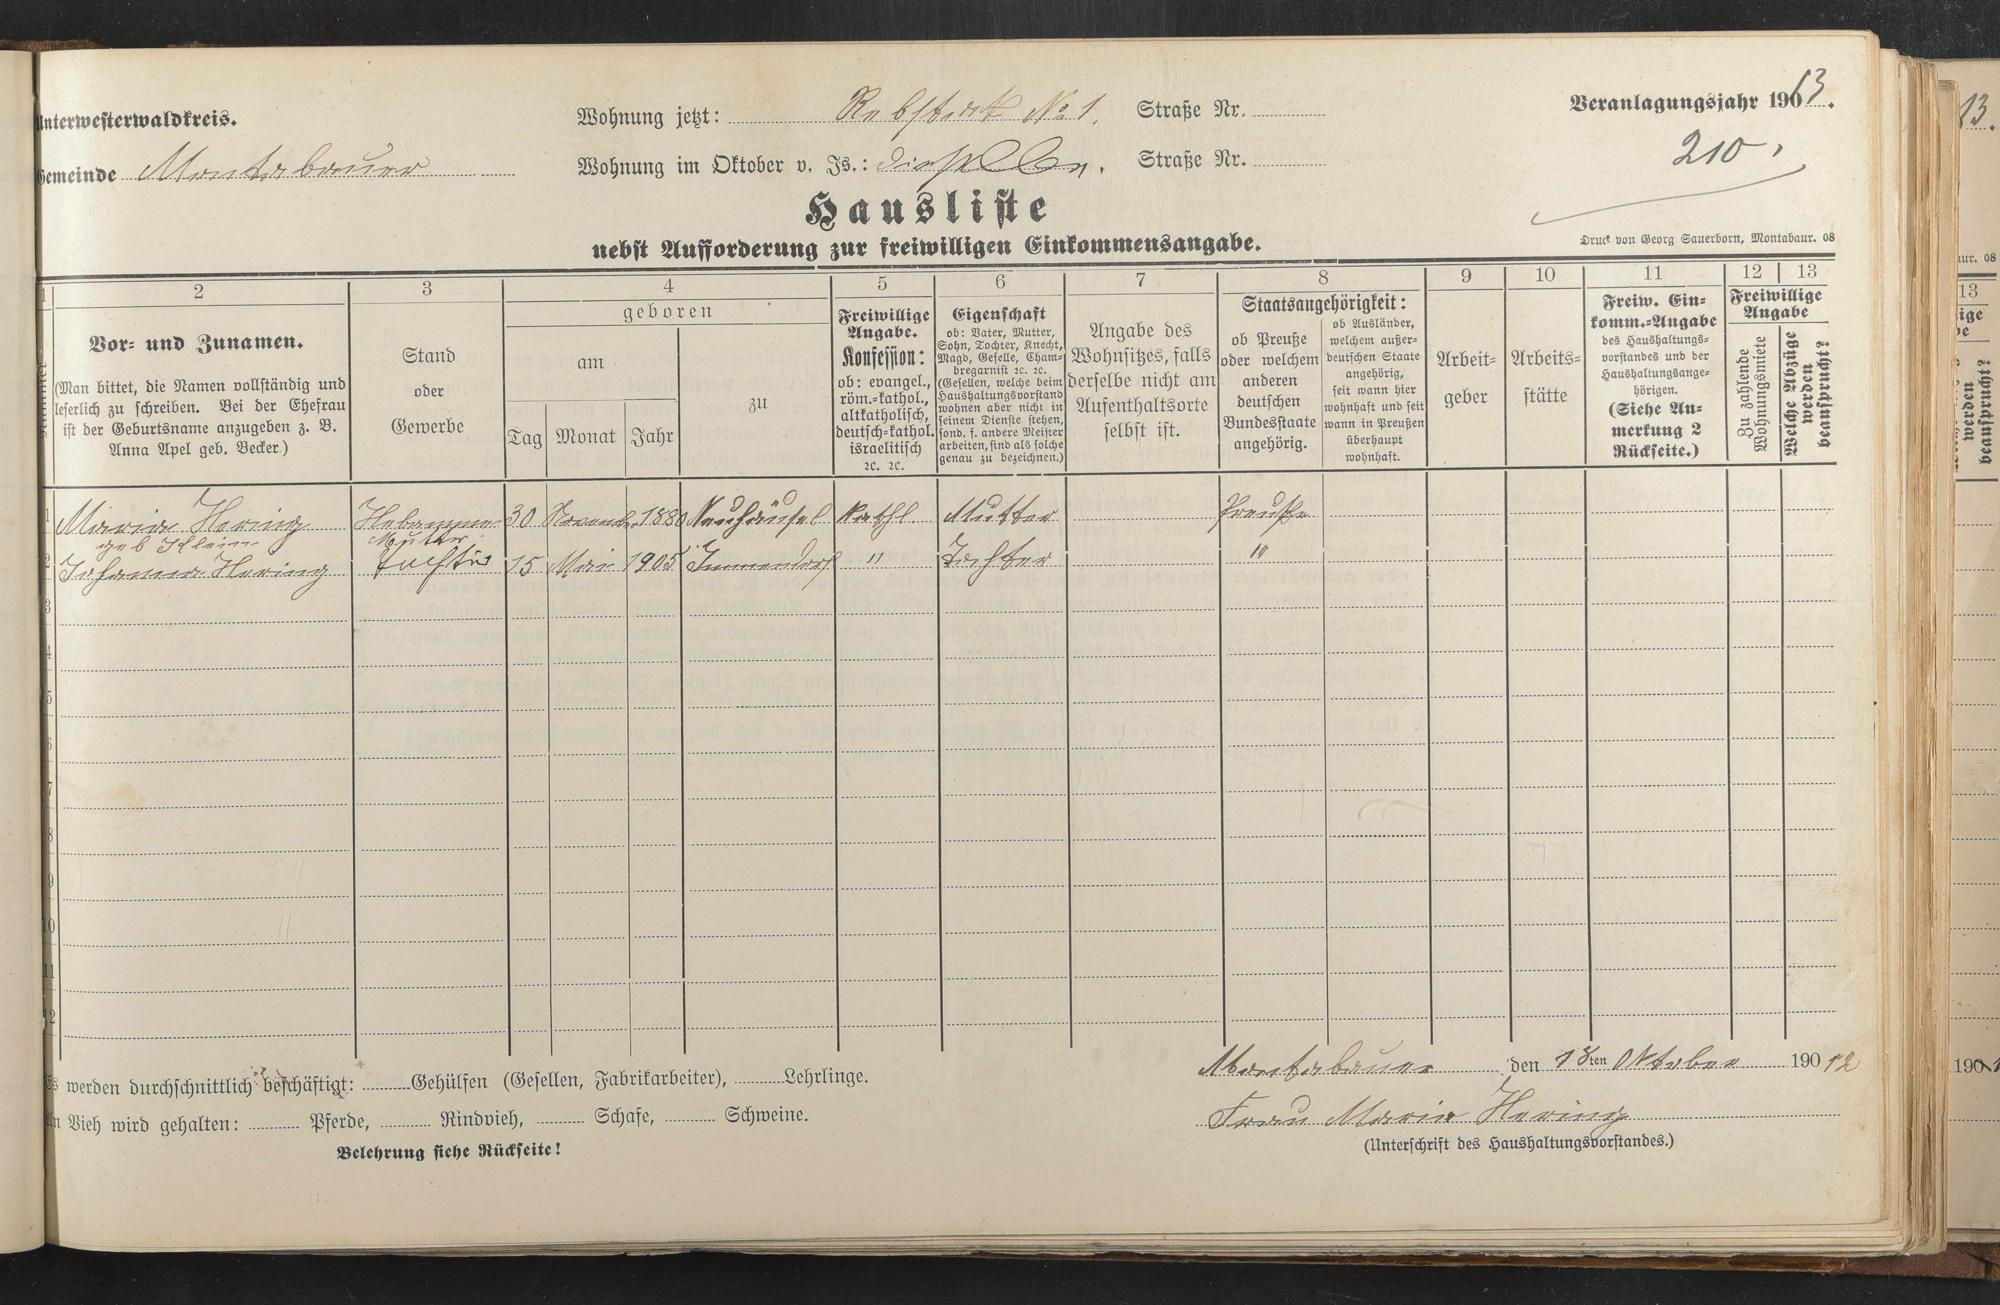 Unterwesterwaldkreis.
Gemeinde Montabauer
Wohnung jetzt: Rebstock No 1. Straße Nr.
Wohnung im Oktober v. Js.: dieselbe. Straße Nr.
Veranlagungsjahr 19013.
210
Hausliste
nebst Aufforderung zur freiwilligen Einkommensangabe.
Druck von Georg Sauerborn, Montabaur. 08
1 2 3 4 5 6 7 8 9 10 11 12 13
Nummer
Vor- und Zunamen.
(Man bittet, die Namen vollständig und
leserlich zu schreiben. Bei der Ehefrau
ist der Geburtsname anzugeben z. B.
Anna Apel geb. Becker.)
Stand
oder
Gewerbe
geboren
am
Tag Monat Jahr
zu
Freiwillige
Angabe.
Konfession:
ob: evangel.,
röm.-kathol.,
altkatholisch,
deutsch-kathol.
israelitisch
ꝛc. ꝛc.
Eigenschaft
ob: Vater, Mutter,
Sohn, Tochter, Knecht,
Magd, Geselle, Cham-
bregarnist ꝛc. ꝛc.
(Gesellen, welche beim
Haushaltungsvorstand
wohnen aber nicht in
seinem Dienste stehen,
sond. f. andere Meister
arbeiten, sind als solche
genau zu bezeichnen.)
Angabe des
Wohnsitzes, falls
derselbe nicht am
Aufenthaltsorte
selbst ist.
Staatsangehörigkeit:
ob Preuße
oder welchem
anderen
deutschen
Bundesstaate
angehörig.
ob Ausländer,
welchem außer-
deutschen Staate
angehörig,
seit wann hier
wohnhaft und seit
wann in Preußen
überhaupt
wohnhaft.
Arbeit-
geber
Arbeits-
stätte
Freiw. Ein-
komm.-Angabe
des Haushaltungs-
vorstandes und der
Haushaltungsange-
hörigen.
(Siehe An-
merkung 2
Rückseite.)
Freiwillige
Angabe
Zu zahlende
Wohnungsmiete
Welche Räume
werden
vermietet?
1 Maria Hering Hebamme 30 Novemb. 1880 Neuhäusel Kathl. Mutter Preuße
geb Klein Mutter
2 Johanna Hering Tochter 15 Mai 1905 Immendorf " Tochter "
3
4
5
6
7
8
9
10
11
12
Es werden durchschnittlich beschäftigt: Gehülfen (Gesellen, Fabrikarbeiter), Lehrlinge.
An Vieh wird gehalten: Pferde, Rindvieh, Schafe, Schweine.
Belehrung siehe Rückseite!
Montabauer, den 18ten Oktober 19012
Frau Maria Hering
(Unterschrift des Haushaltungsvorstandes.)